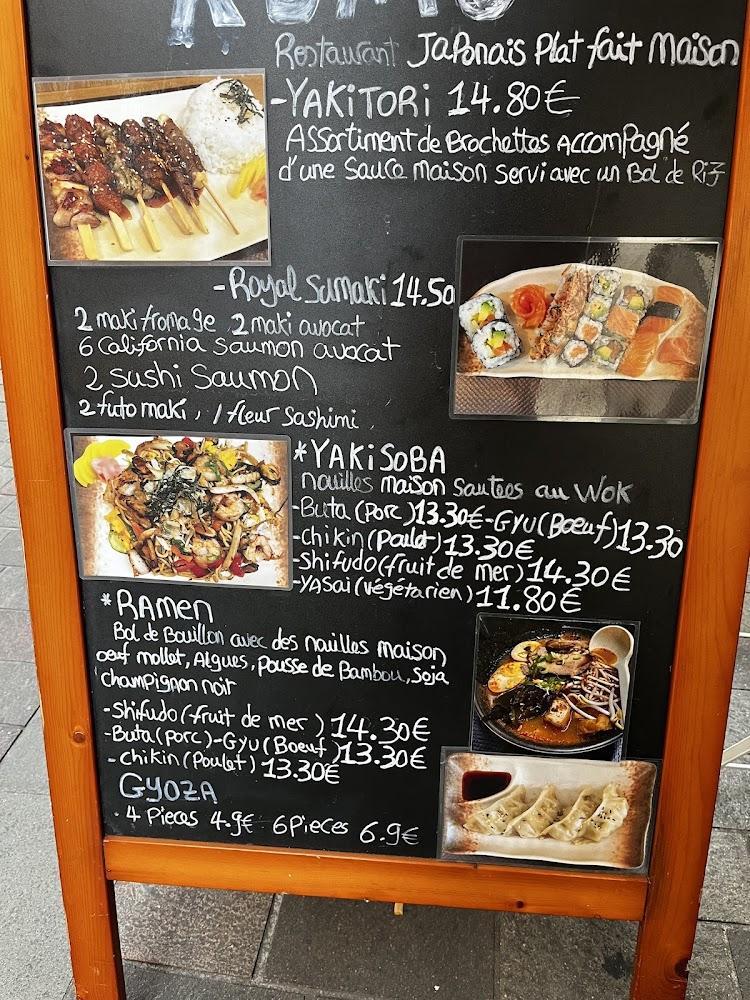 Restaurant Japonais Plat fait Maison
-YAKITORI 14.80€
Assortiment de Brochettes Accompagné
d'une Sauce maison servi avec un Bol de Riz
-Royal Sumaki 14.50
2 maki fromage 2 maki avocat
6 California saumon avocat
2 sushi Saumon
2 futo maki, 1 fleur Sashimi
*YAKISOBA
nouilles maison sautees au Wok
-Buta (porc) 13.30€-GYU (Bœuf) 13.30
-chikin (Poulet) 13.30€
-Shifudo (fruit de mer) 14.30€
-YASai (végétarien) 11.80€
*RAMEN
Bol de Bouillon avec des nouilles maison
oeuf mollet, Algues, pousse de Bambou, Soja
champignon noir
-Shifudo (fruit de mer) 14.30€
-Buta (porc)-GYU (Boeuf) 13.30€
-chikin (Poulet) 13.30€
GYOZA
4 Pieces 4.9€ 6 Pieces 6.9€